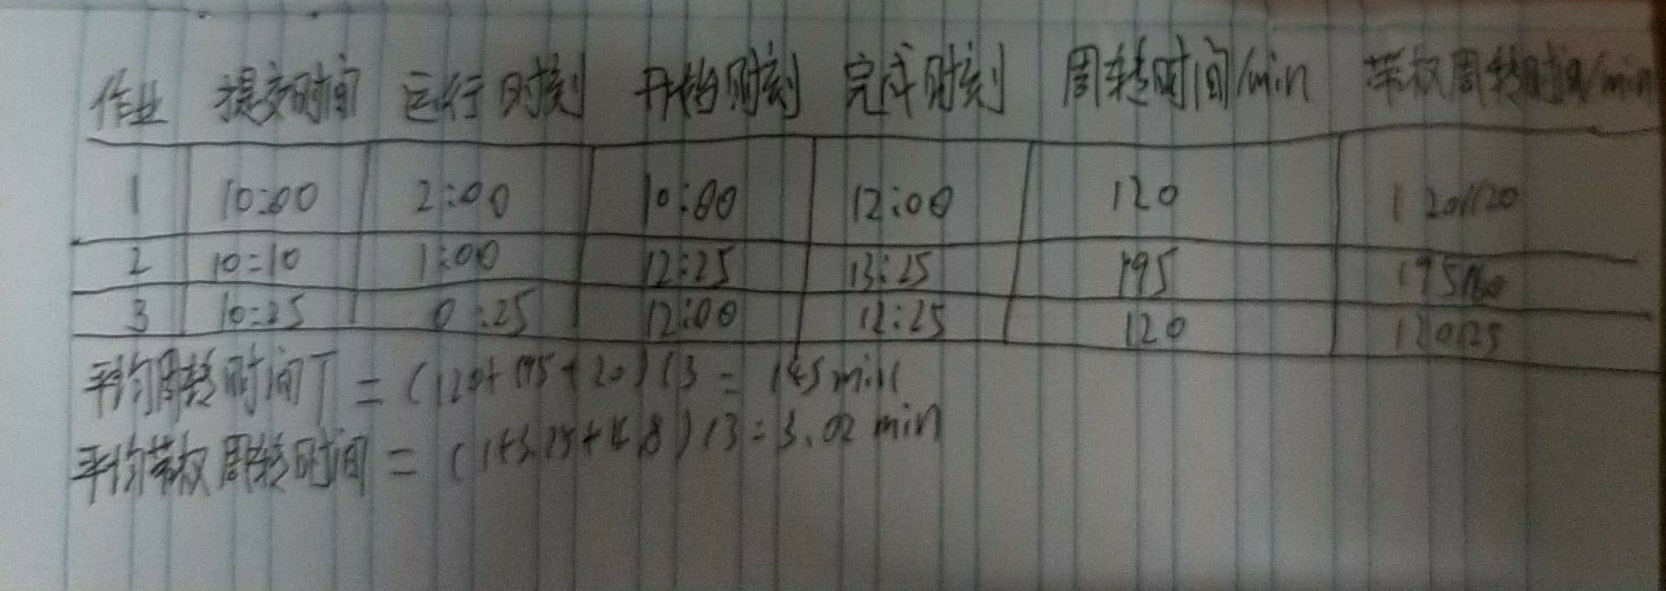 作业 提交时间 运行时刻 开始时刻 完成时刻 周转时间/min 带权周转时间/min
1 10:00 2:00 10:00 12:00 120 120/120
2 10:10 1:00 12:25 13:25 195 195/60
3 10:25 0:25 12:00 12:25 120 120/25
平均周转时间T = (120+195+120)/3 = 145min
平均带权周转时间 = (1+3.25+4.8)/3=3.02 min